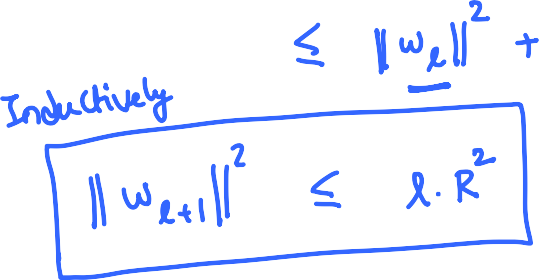 ≤ ‖w_ℓ‖² +
Inductively
‖w_{ℓ+1}‖² ≤ ℓ · R²